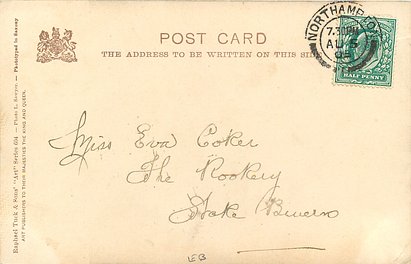 POST CARD
THE ADDRESS TO BE WRITTEN ON THIS SIDE
NORTHAMPTON
7.30 PM
AU 5
HALF PENNY
Miss Eva Coker
The Rookery
Stoke Bruern
LB
Raphael Tuck & Sons' "Art" Series
ART PUBLISHERS TO THEIR MAJESTIES THE KING AND QUEEN.